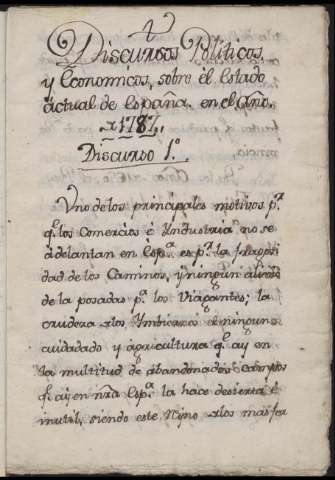 Discursos Políticos,
y Economicos, sobre èl Estado
actual de España. en el Año.
1787.
Discurso 1.º
Uno de los principales motivos p.ª
q.e los Comercios è Yndustria no se
àdelantan en Esp.ª es p.r la fragosi
dad de los Caminos, y ningun
de la posadas p.ª los Viagantes; la
crudeza los Ymbiernos el ningun
cuidadado y agricultura q.e ay en
la multitud de abandonados campos
q.e ay en nrã Esp.ª la hace desierta è
inutil, siendo este Rino los mas fer